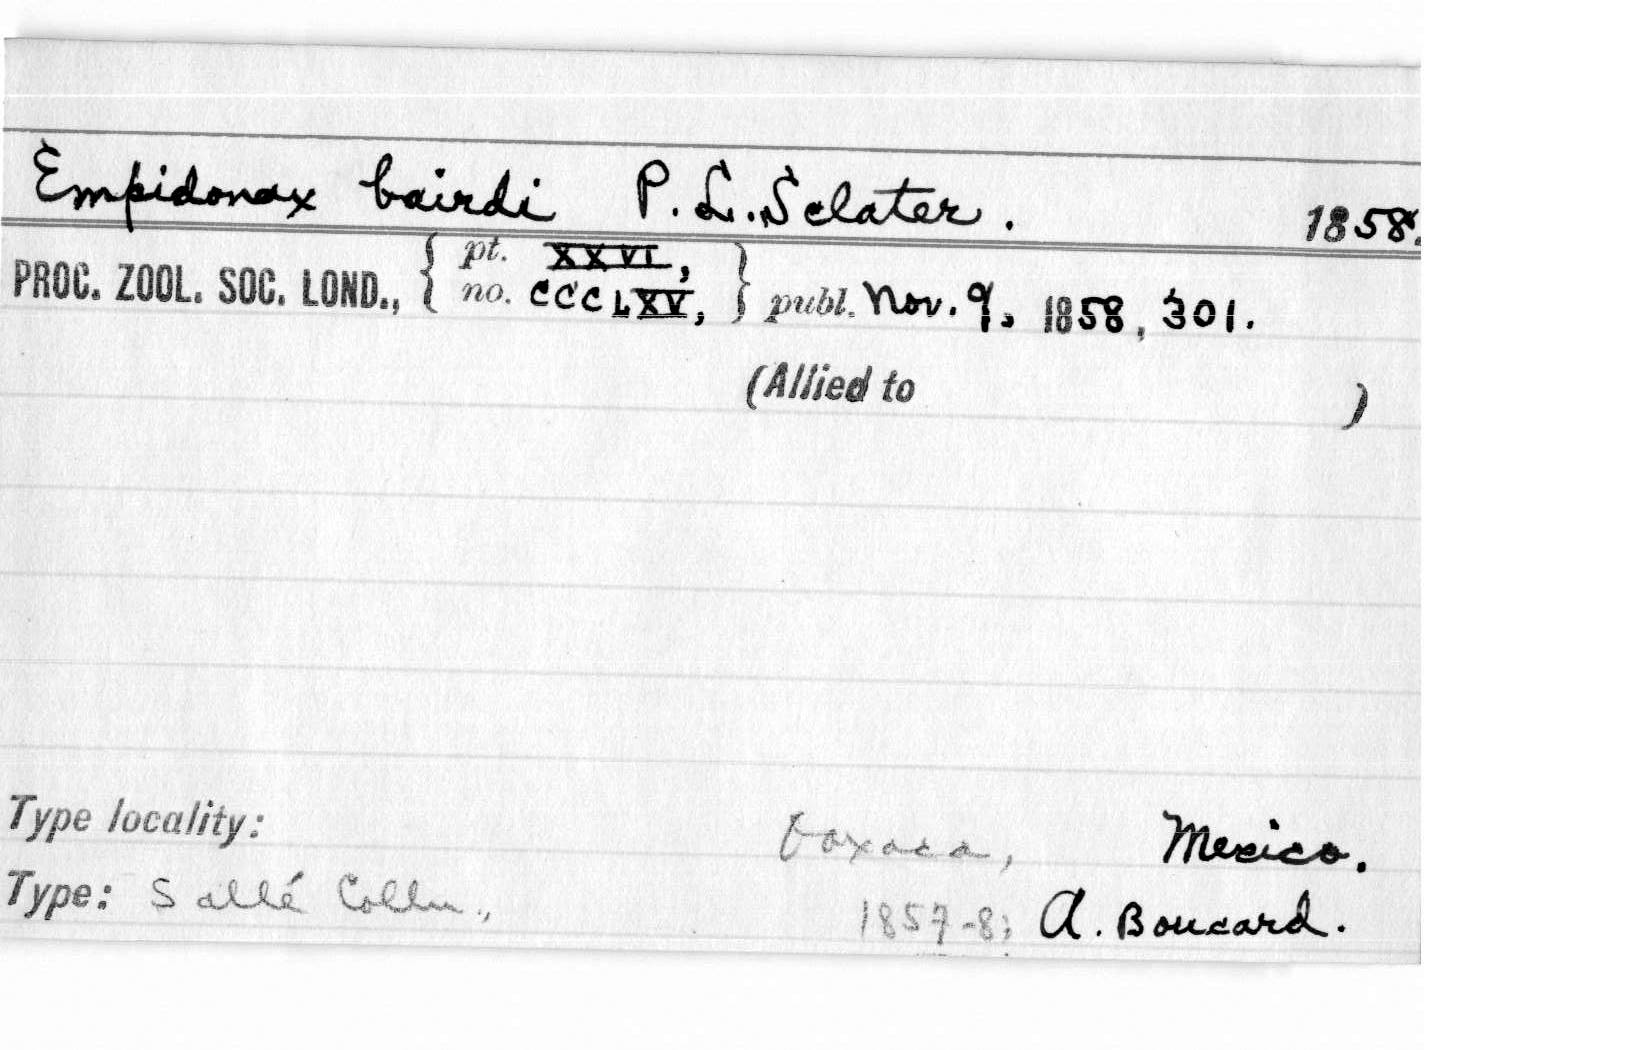 Empidonax bairdi P. L. Sclater. 1858.
PROC. ZOOL. SOC. LOND., { pt. XXVI, no. CCCLXV, } publ. Nov. 9, 1858, 301.
(Allied to )
Type locality: Oaxaca, Mexico.
Type: Sallé Colln., 1857-8; A. Boucard.